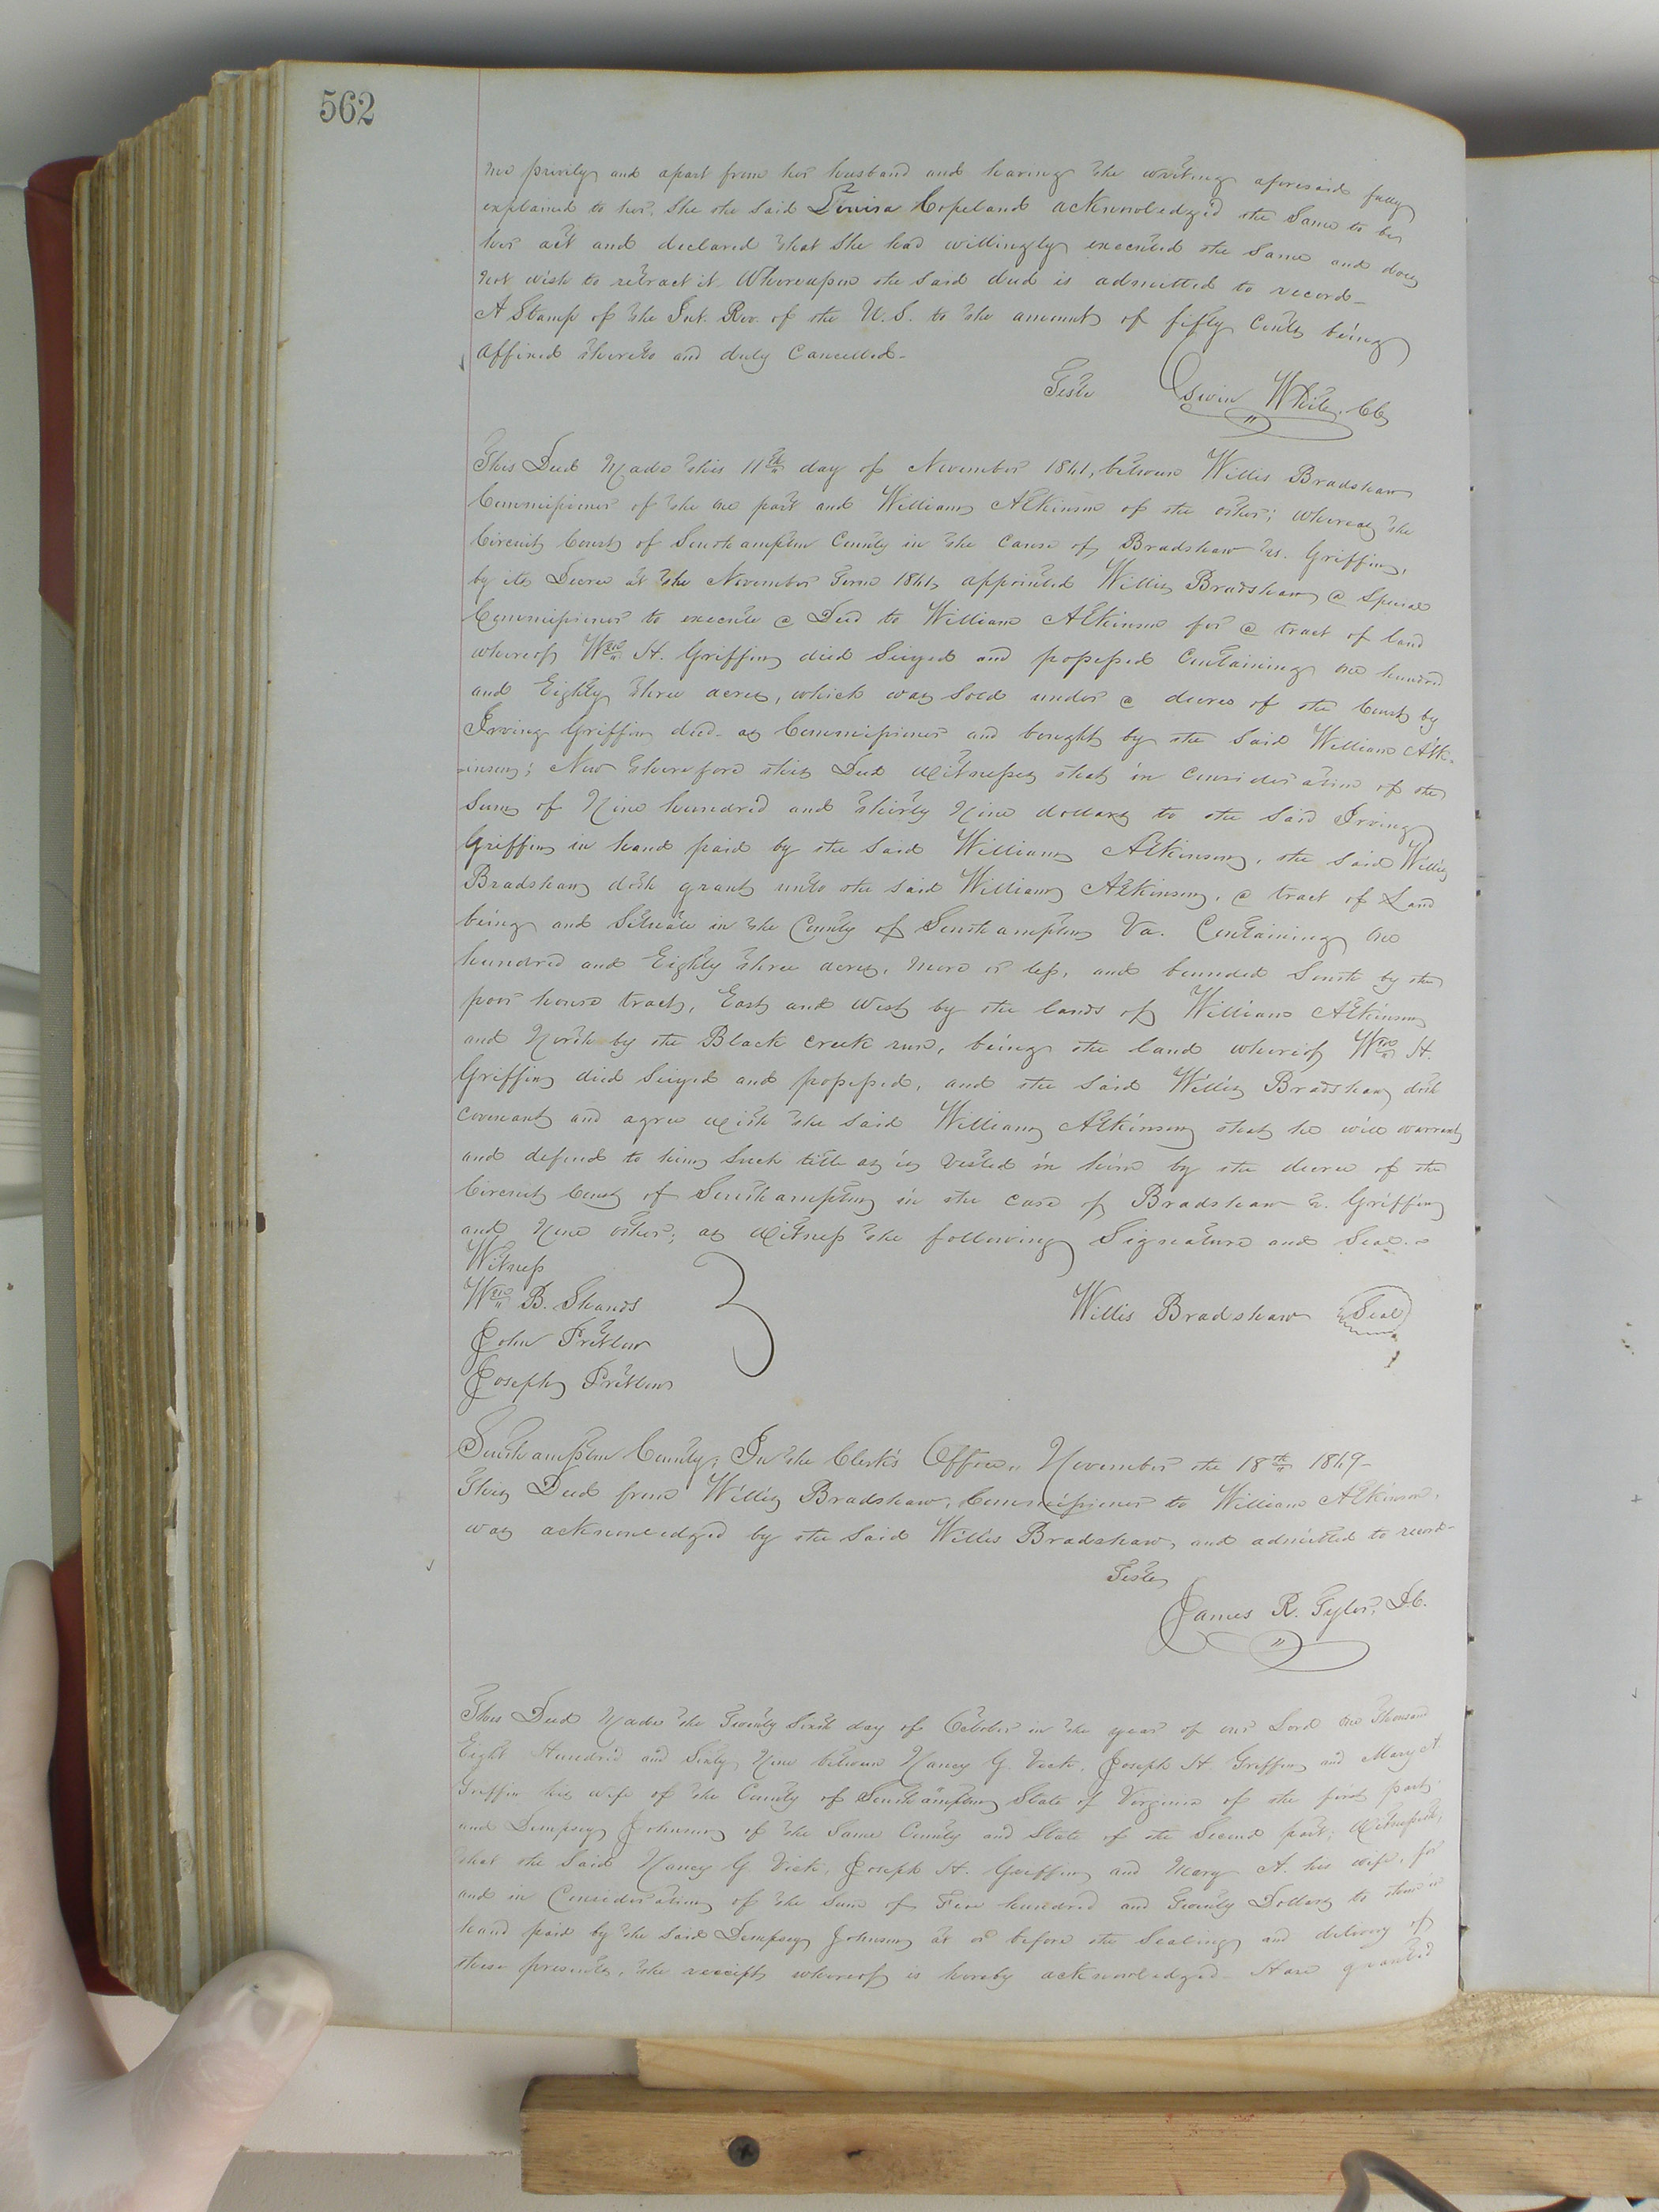 562
me privily and apart from her husband and having the writing aforesaid fully
explained to her, She the said Louisa Copeland acknowledged the Same to be
her act and declared that She had willingly executed the Same and does
not wish to retract it Whereupon the said deed is admitted to record-
A Stamp of the Int. Rev. of the U.S. to the amount of fifty Cents being
affixed thereto and duly Cancelled-
Teste Edwin White, Clk
This Deed Made this 11th day of November 18 between Willis Bradshaw
Commissioner of the one part and William Atkinson of the other; whereas the
Circuit Court of Southampton County in the Cause of Bradshaw vs. Griffin,
by its Decree at the November Term 18 appointed Willis Bradshaw a Special
Commissioner to execute a Deed to William Atkinson for a tract of land
whereof Wm H. Griffin died Seized and possessed Containing one hundred
and Eighty three acres, which was Sold under a decree of the Court by
Irving Griffin decd- as Commissioner and bought by the Said William Atk-
-inson; Now therefore this Deed witnesses that in Consideration of the
Sum of Nine hundred and thirty Nine dollars to the Said Irving
Griffin in hand paid by the said William Atkinson, the said Willis
Bradshaw doth grant unto the said William Atkinson, a tract of Land
being and Situate in the County of Southampton Va. Containing One
hundred and Eighty three acres, more or less, and bounded South by the
poor house tract, East and West by the lands of William Atkinson
and North by the Black Creek run, being the land whereof Wm H.
Griffin died Seized and possessed, and the said Willis Bradshaw doth
covenant and agree with the said William Atkinson that he will warrant
and defend to him Such title as is Vested in him by the decree of the
Circuit Court of Southampton in the case of Bradshaw v. Griffin
and None other; as Witness the following Signature and Seal.-
Witness
Wm B. Shands
Willis Bradshaw Seal
John Pretlow
Joseph Pretlow
Southampton County; In the Clerk's Office,, November the 18th 1869-
This Deed from Willis Bradshaw, Commissioner to William Atkinson,
was acknowledged by the Said Willis Bradshaw, and admitted to record-
Teste
James R. Tyler, D.C.
This Deed Made the Twenty Sixth day of October in the year of our Lord One Thousand
Eight Hundred and Sixty Nine between Nancy G. Vick, Joseph H. Griffin and Mary A.
Griffin his wife of the County of Southampton State of Virginia of the first part
and Dempsey Johnson of the Same County and State of the Second part; Witnesseth,
that the Said Nancy G. Vick, Joseph H. Griffin and Mary A. his wife, for
and in Consideration of the Sum of hundred and Twenty Dollars to them in
hand paid by the Said Dempsey Johnson at or before the Sealing and delivery of
these presents, the receipt whereof is hereby acknowledged- Have granted